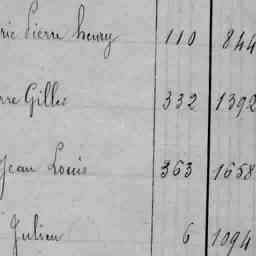 ric Pierre henry 110 844
rre Gilles 332 1392
Jean Louis 363 1658
Julien 6 1094